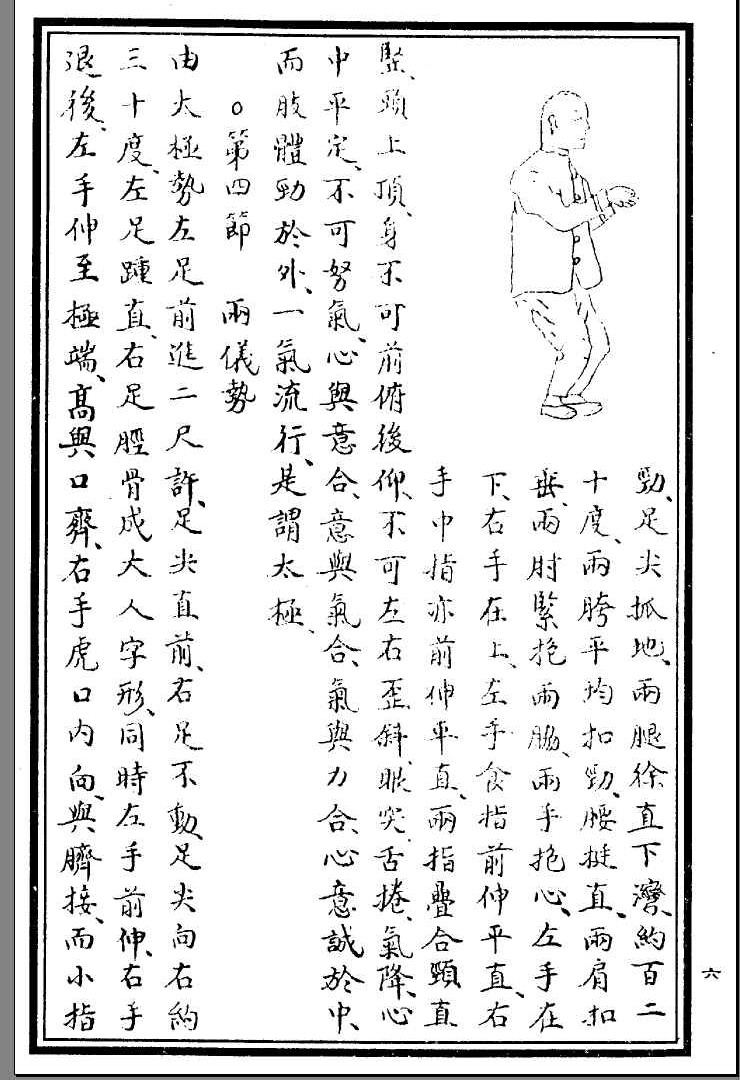 勁、足尖抓地、兩腿徐直下灣、約百二
十度、兩胯平均扣勁、腰挺直、兩肩扣
垂、兩肘緊抱兩脇、兩手抱心、左手在
下、右手在上、左手食指前伸平直、右
手中指亦前伸平直、兩指疊合頸直
緊、頭上頂、身不可前俯後仰、不可左右歪斜、眼突、舌捲、氣降、心
中平定、不可努氣、心與意合、意與氣合、氣與力合、心意誠於中、
而肢體勁於外、一氣流行、是謂太極、
○第四節 兩儀勢
由太極勢左足前進二尺許、足尖直前、右足不動、足尖向右約
三十度、左足踵直、右足脛骨成大人字形、同時左手前伸、右手
退後、左手伸至極端、高與口齊、右手虎口內向、與臍接、而小指
六